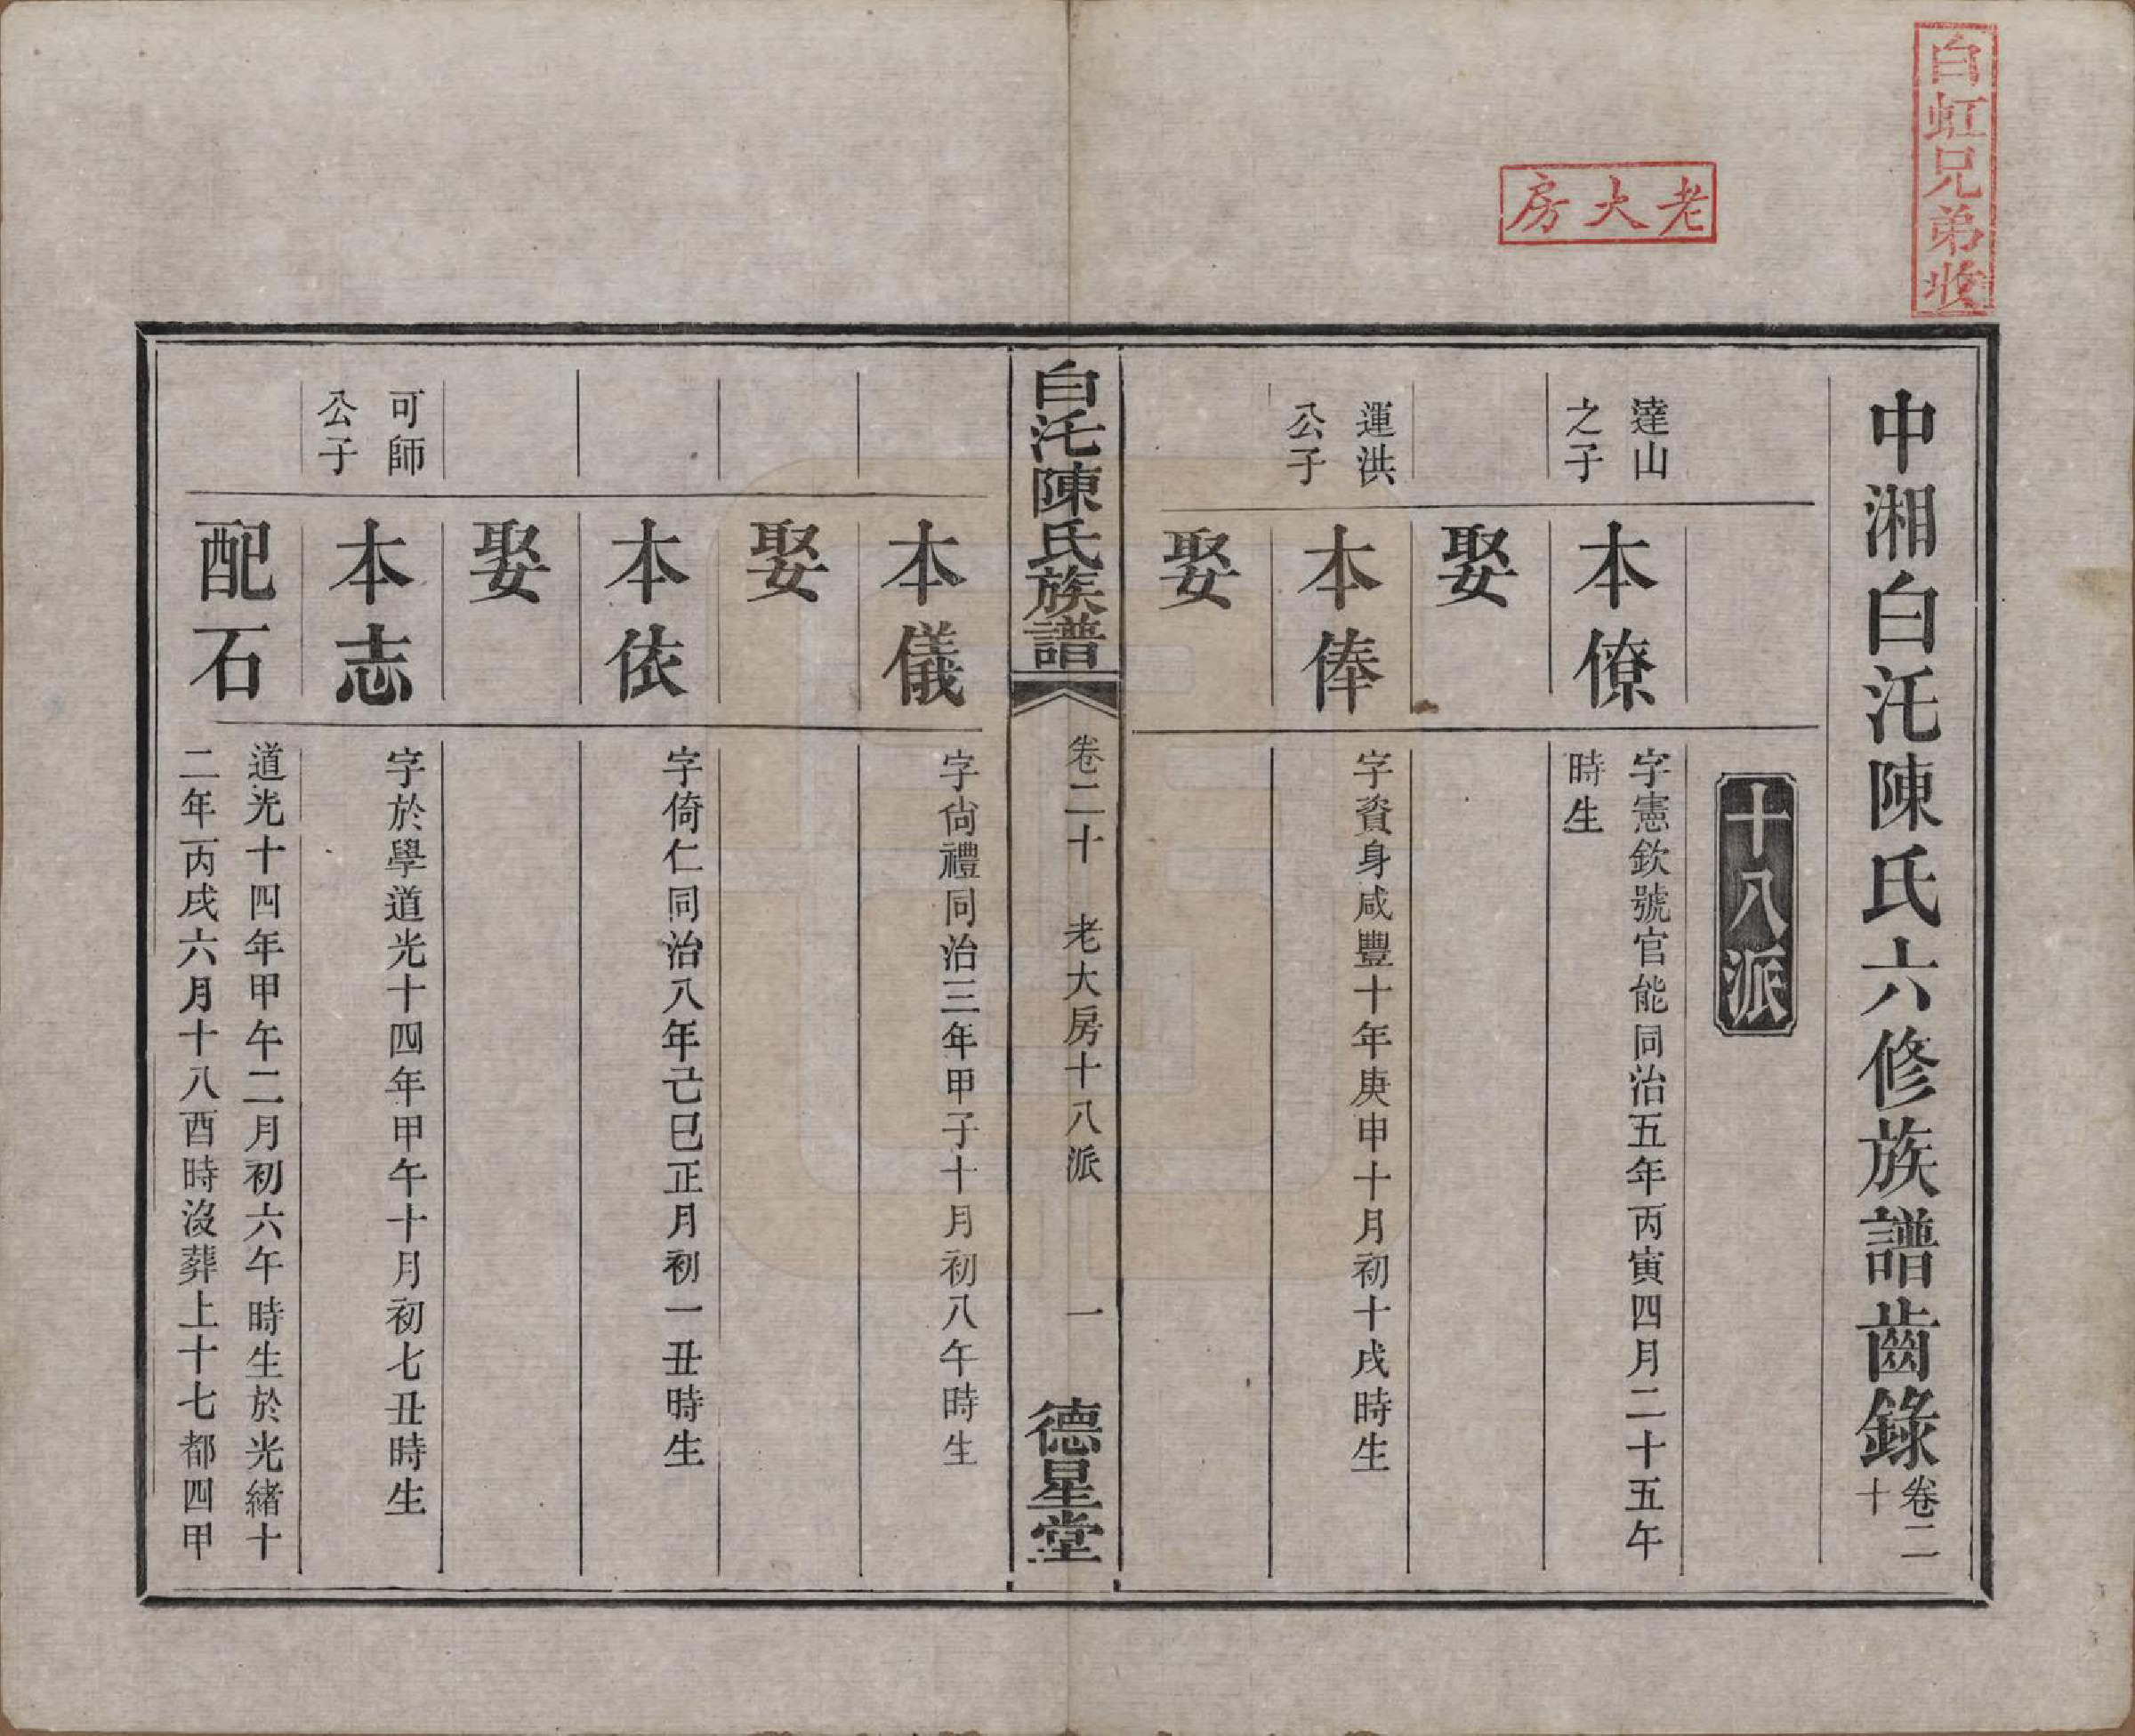 白虹兄弟收
老大房
中湘白汑陳氏六修族譜齒錄卷二十
十八派
達山之子
本僚
字憲欽號官能同治五年丙寅四月二十五午
時生
娶
運洪公子
本俸
字資身咸豐十年庚申十月初十戌時生
娶
白汑陳氏族譜
卷二十 老大房十八派 一
德星堂
本儀
字尙禮同治三年甲子十月初八午時生
娶
本依
字倚仁同治八年己巳正月初一丑時生
娶
可師公子
本志
字於學道光十四年甲午十月初七丑時生
配石
道光十四年甲午二月初六午時生於光緖十
二年丙戌六月十八酉時沒葬上十七都四甲